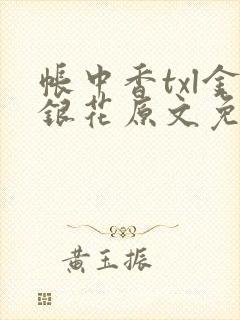 帳中香txl金
銀花原文免
黃玉振